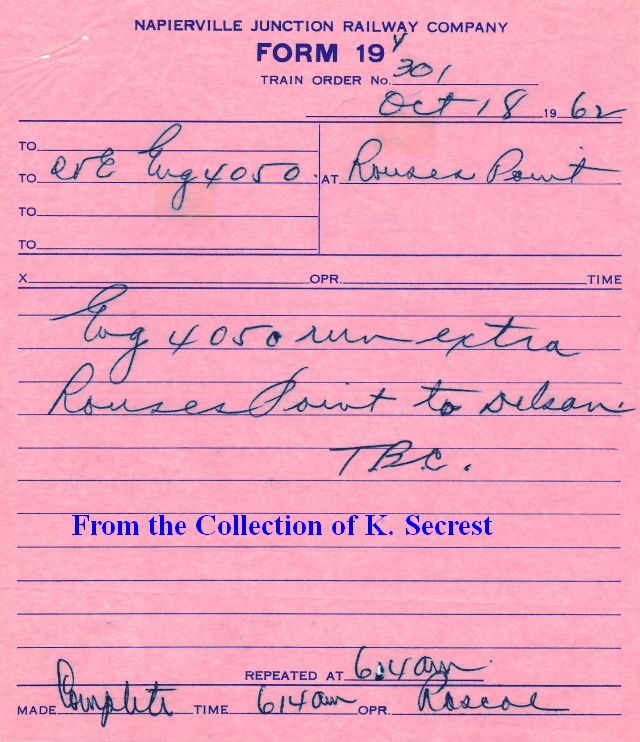 NAPIERVILLE JUNCTION RAILWAY COMPANY
FORM 19 Y
TRAIN ORDER No. 301
Oct 18 1962
TO
TO C&E Eng 4050 AT Rouses Point
TO
TO
X OPR. TIME
Eng 4050 run extra
Rouses Point to Delson.
T.B.C.
From the Collection of K. Secrest
REPEATED AT 6:14 am
MADE Complete TIME 614 am OPR. Roscoe